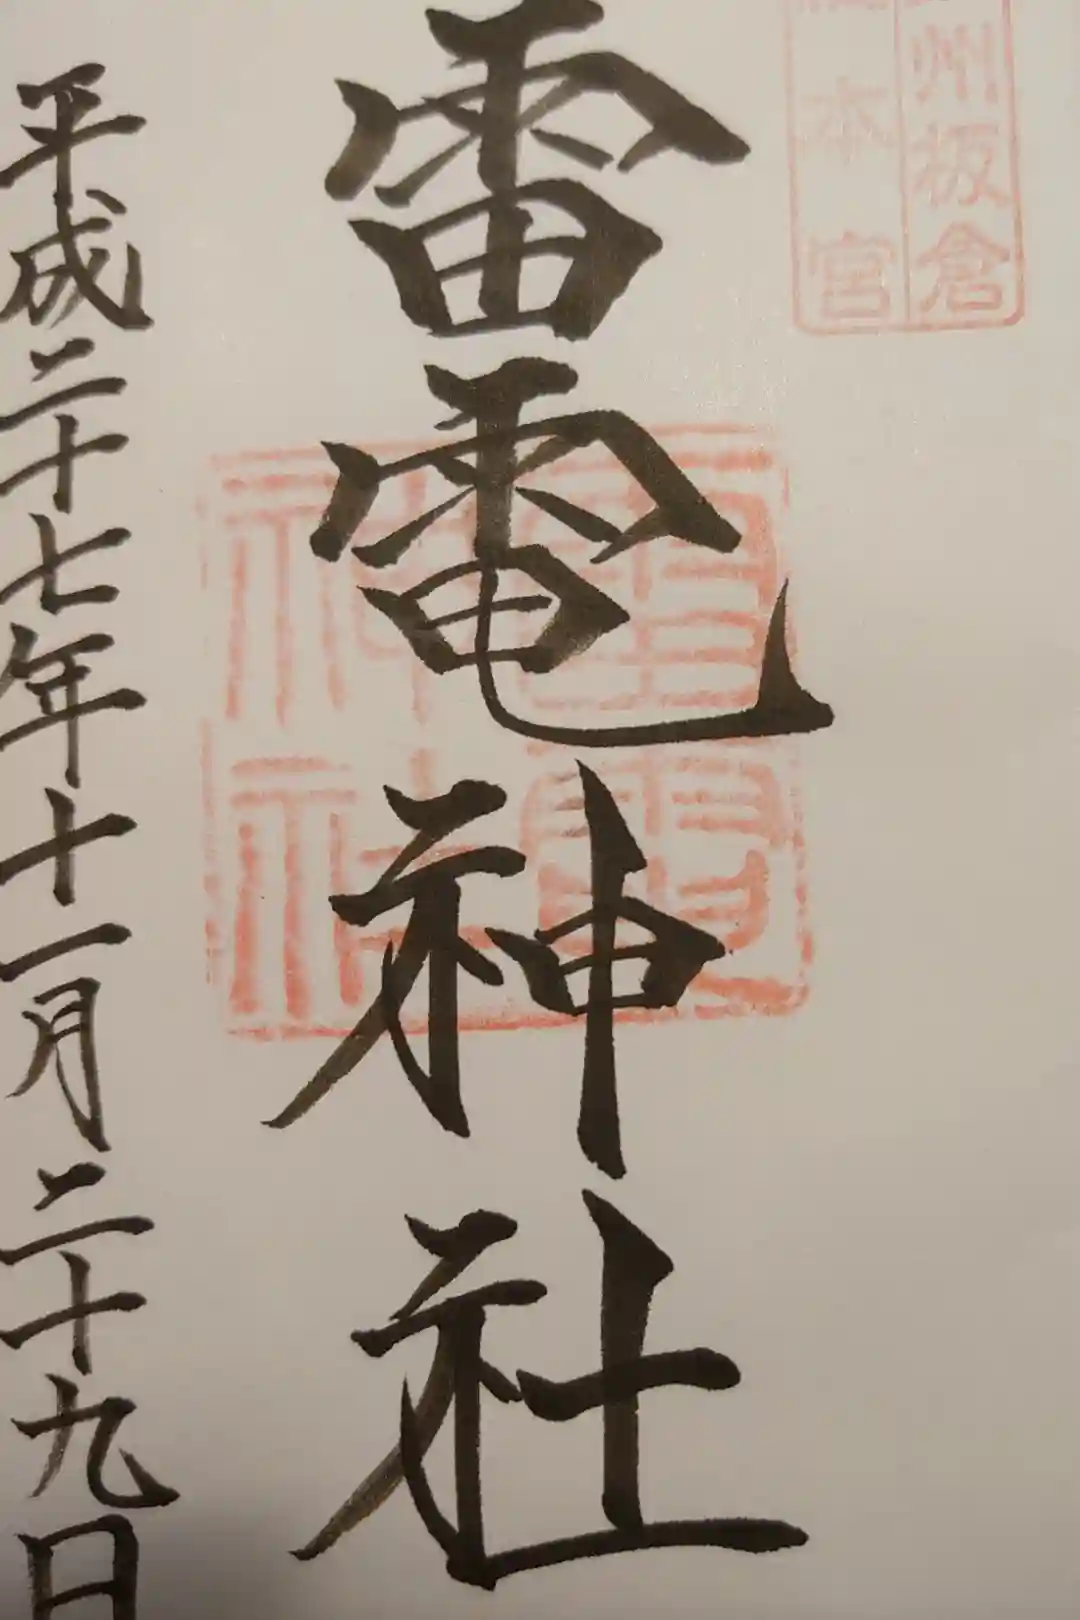 州板倉
本宮
雷電神社
雷電神社
平成二十七年十一月二十九日